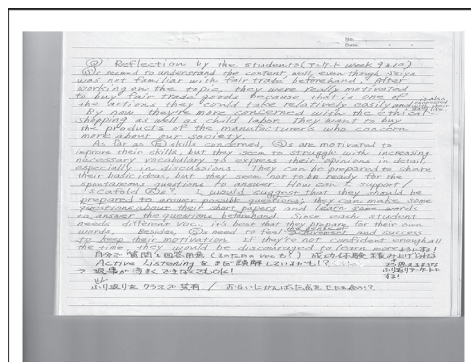 No.
Date
Q Reflection by the students (week 9
Ss seemed to understand the content well, even though Seiya
was not familiar with fair trade beforehand. After
working on the topic, they were really motivated
to buy fair trade goods because that is one of
the actions they could take relatively easily and
By now they're more concerned with the ethical
shopping as well as child labor. They want to buy
the products of the manufacturers who concern
more about our society.
As far as skills concerned, Ss are motivated to
improve their skills, but they seem to struggle with increasing
necessary vocabulary to express their opinions in detail,
especially in discussions. They can be prepared to share
their basic ideas, but they seem not to be ready for the
spontaneous questions to answer. How can I support
scaffold Ss? I would suggest that they should be
prepared to answer possible questions; they can make some
questions about their short papers and learn some words
to answer the questions beforehand. Since each student
needs different voc, it's best that they prepare for their own
words. Besides, Ss need to feel and success
to keep their motivation. If they're not confident enough all
the time, they would be discouraged to learn more
自分で質問と回答用意 (そのための voc も) 成功体験 積み上げ
Active Listening を
ふり返りをクラスで共有 /